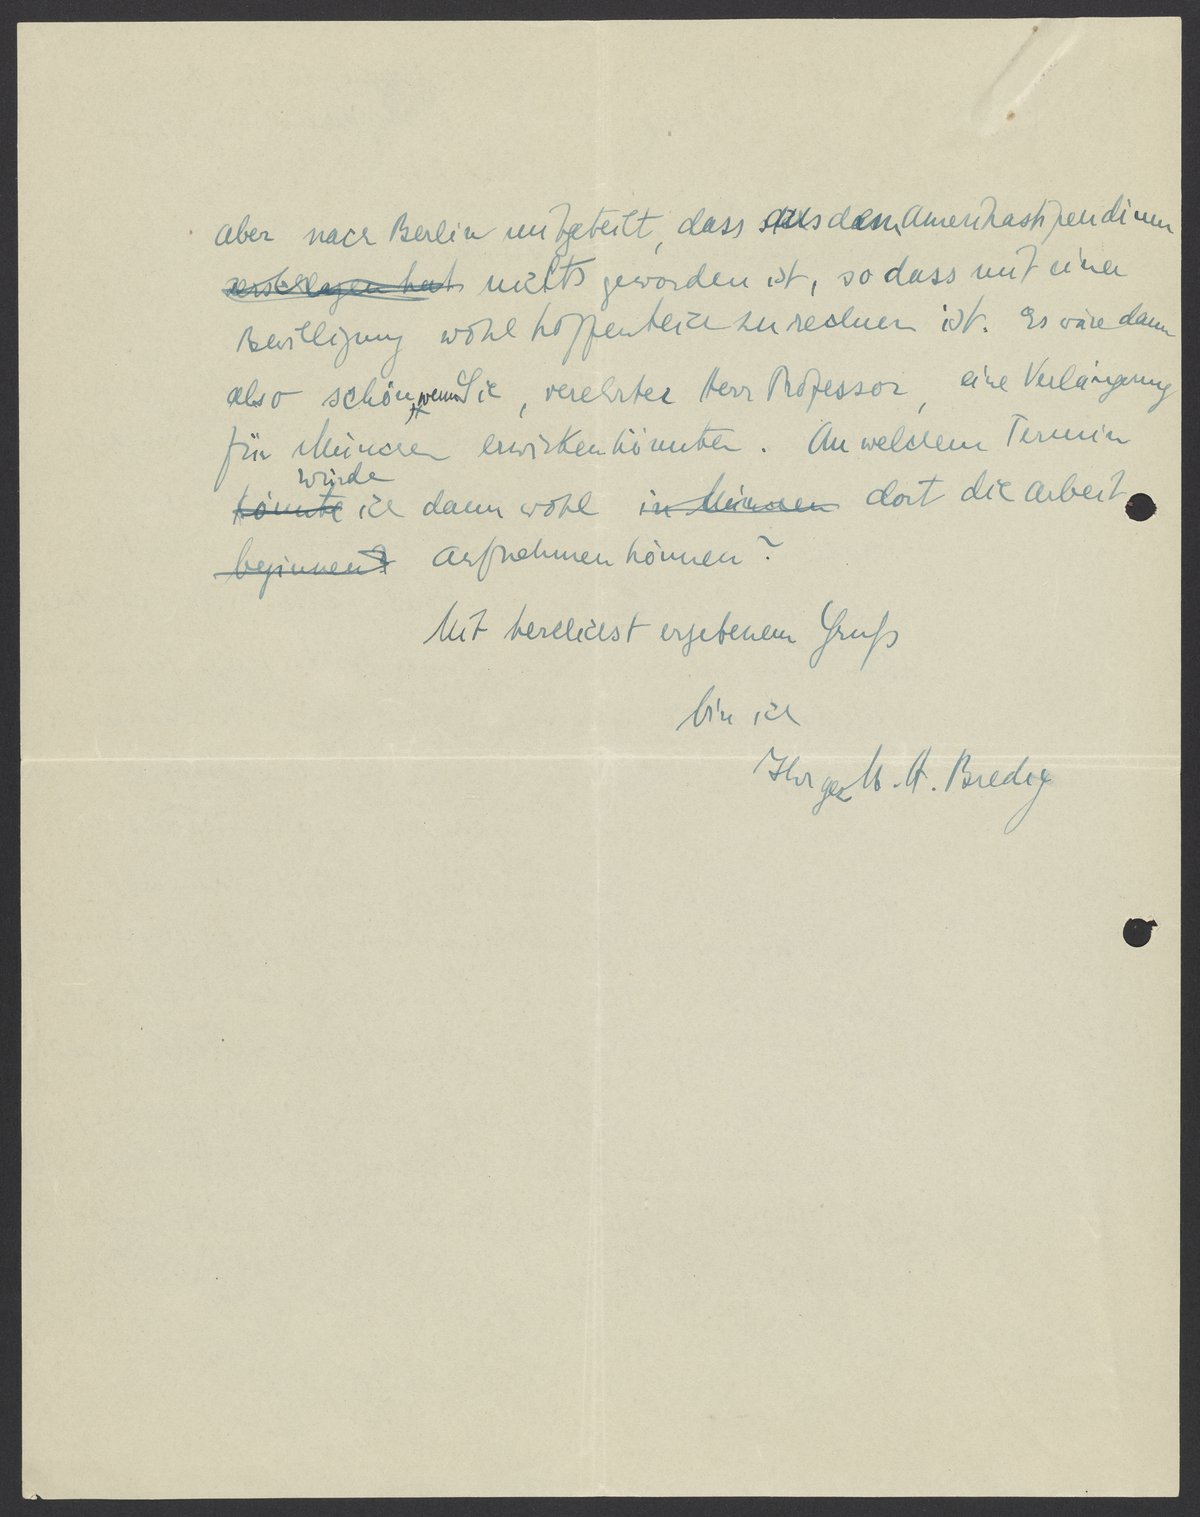 aber nach Berlin mitgeteilt, dass aus dem Amerikastipendium
zerschlagen hat nichts geworden ist, so dass mit einer
Bewilligung wohl hoffentlich zu rechnen ist. Es wäre dann
also schön, wenn Sie, verehrter Herr Professor, eine Verlängerung
für München erwirken könnten. An welchem Termin
würde
könnte ich dann wohl in München dort die Arbeit
beginnen? aufnehmen können?
Mit herzlichst ergebenem Gruß
bin ich
Ihr gez M. A. Bredig